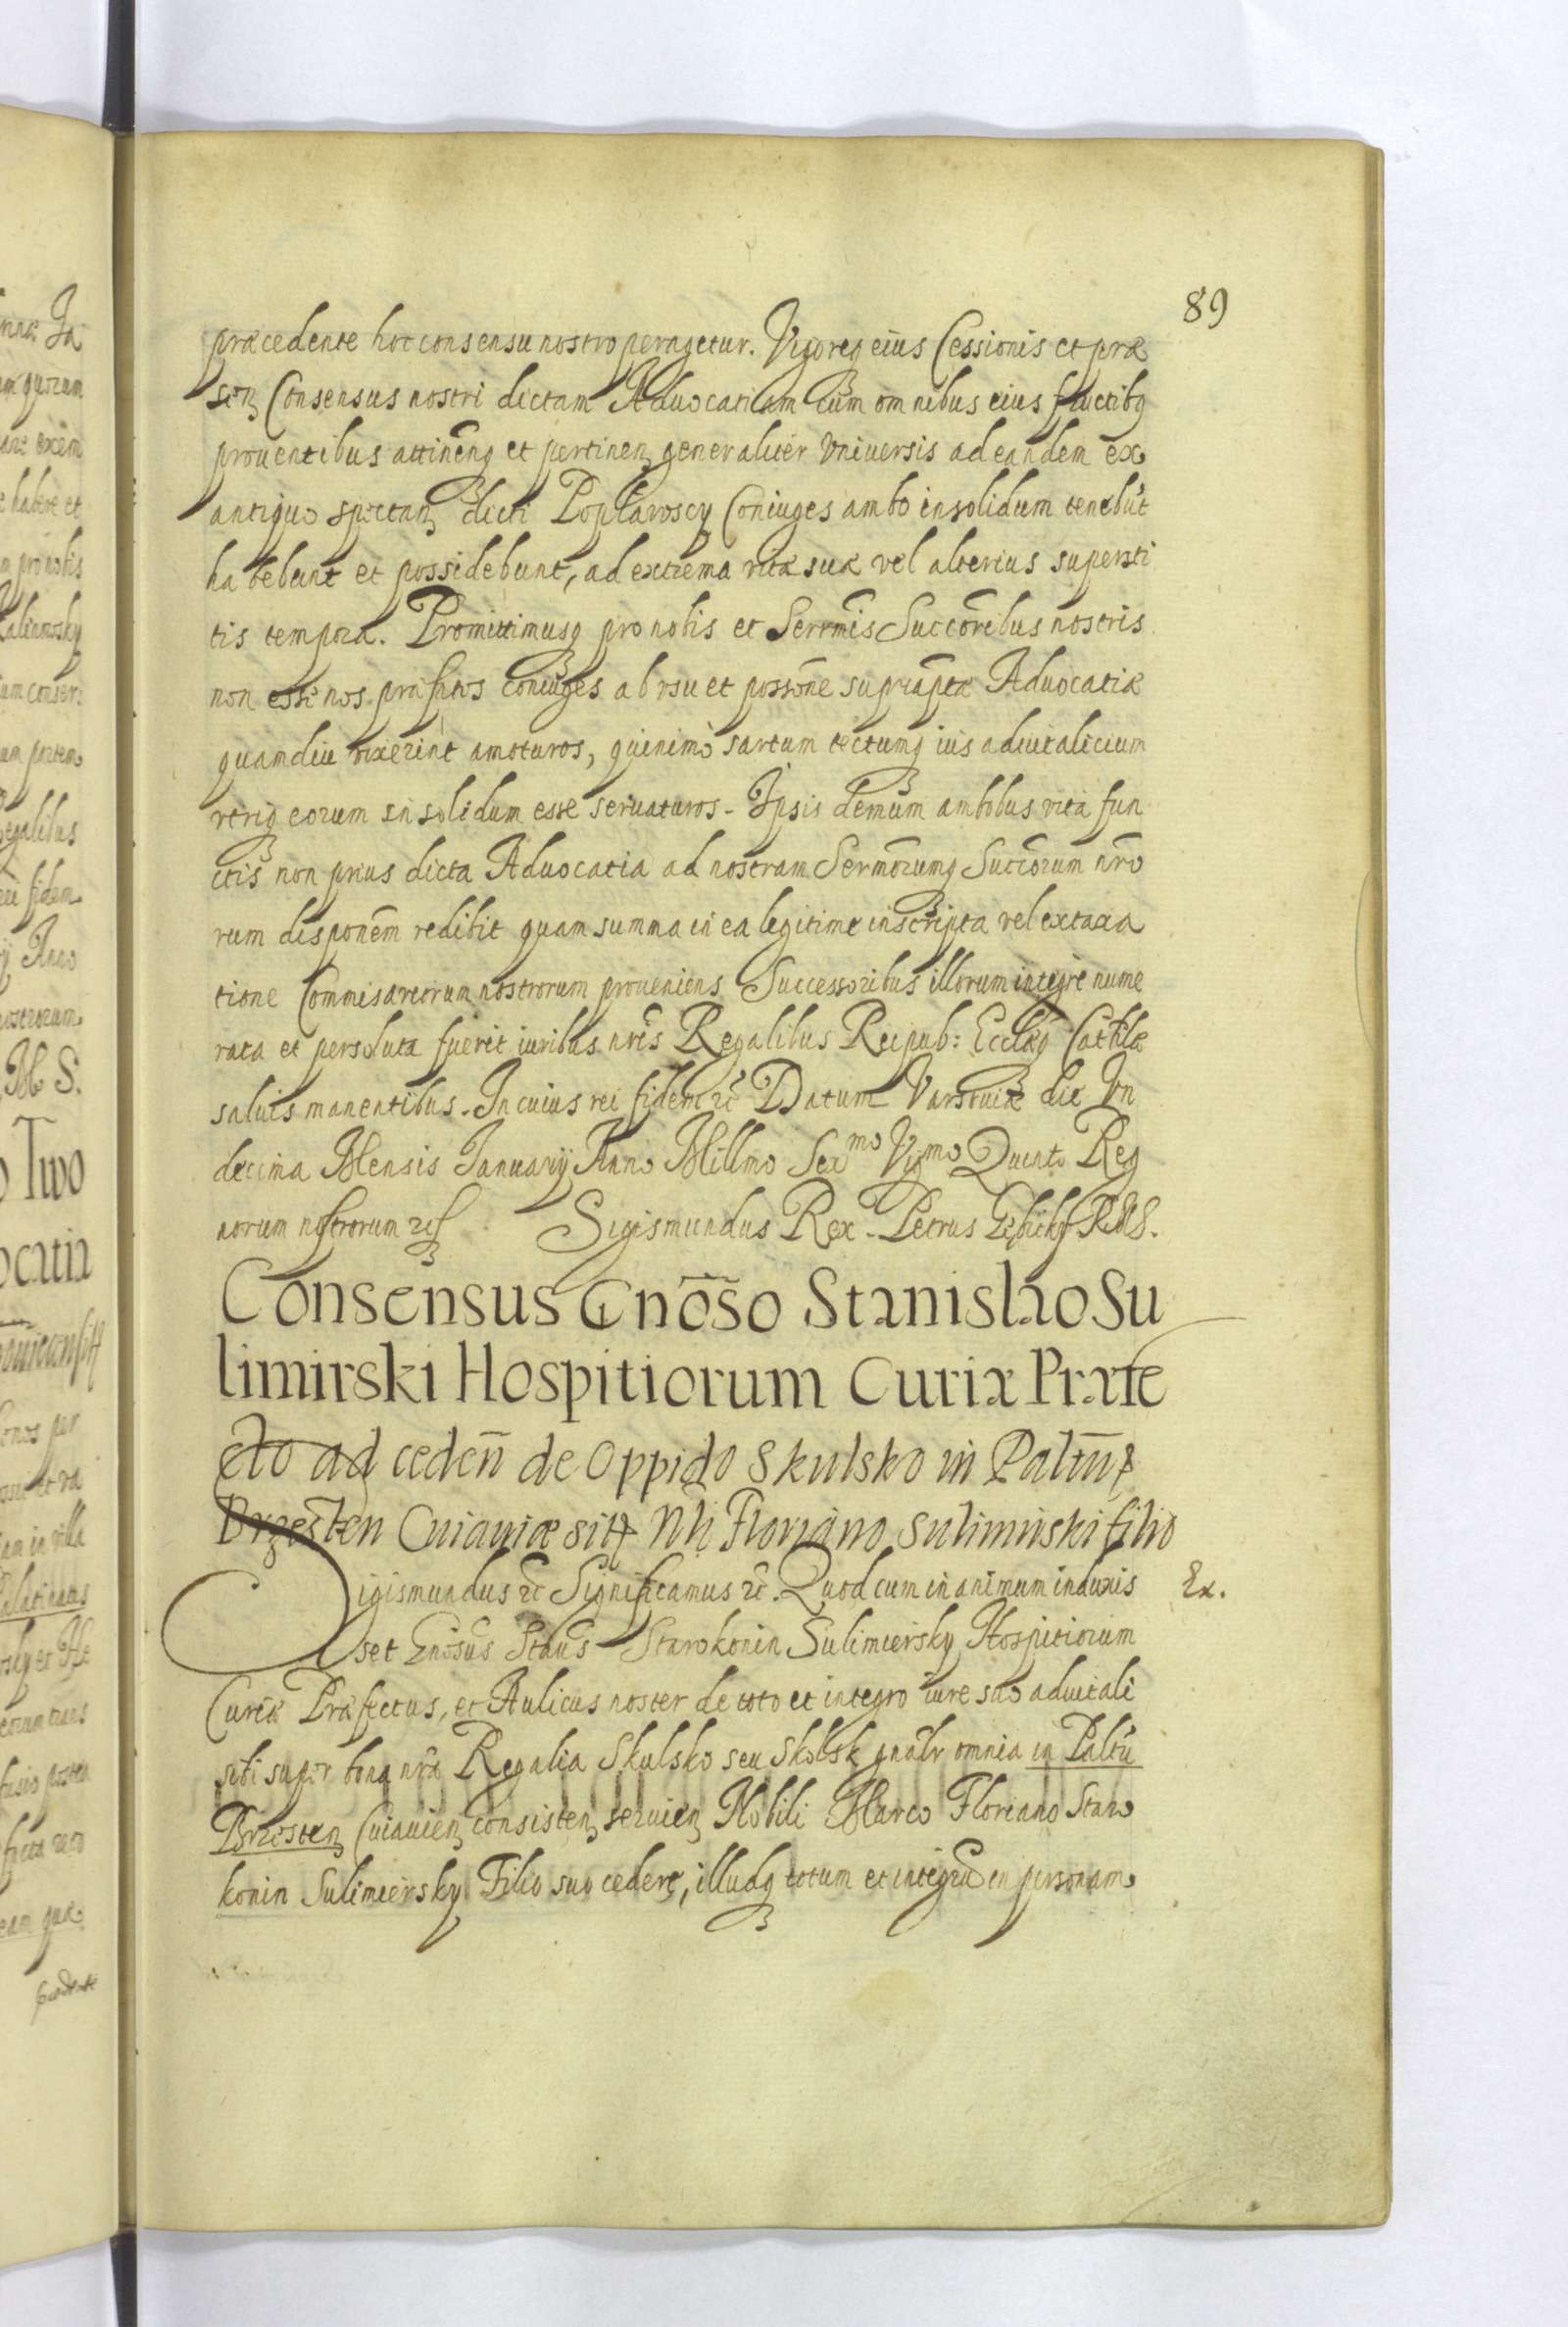 89
præcedente hoc consensu nostro peragetur. Vigoreq eius Cessionis et præ
sen Consensus nostri dictam Aduocatiam cum omnibus eius fructibq
prouentibus attinenq et pertinen generaliter Vniuersis ad eandem ex
antiquo spectan dicti Poplawscy Coniuges ambo insolidum tenebūt
habebunt et possidebunt, ad extrema vitæ suæ vel alterius supersti
tis tempora. Promittimusq pro nobis et Serenmis Succōribus nostris
non esse nos præfatos coniuges ab vsu et possōne suprāptæ Aduocatiæ
quamdiu vixerint amoturos, quinimo sartum tectumq ius aduitalicium
vtriq eorum in solidum esse seruaturos. Ipsis demum ambobus vita fun
ctis non prius dicta Aduocatia ad nostram Sermōrumq Succōrum nrō
rum disponēm redibit quam summa in ea legitime inscripta vel ex taxa
tione Commisariorum nostrorum proueniens Successoribus illorum integre nume
rata et persoluta fuerit iuribus nrīs Regalibus Reipub: Ecclæq Cathlæ
saluis manentibus. In cuius rei fidem etc̄ Datum Varsouiæ die Vn
decima Mensis Januarij Anno Millmo Sexmo Vigmo Quinto Reg
norum nostrorum etc
Sigismundus Rex. Petrus Gębicky RMS.
Consensus Gnōso Stanislao Su
limirski Hospitiorum Curiæ Præfe
cto ad ceden̄ de Oppido Skulsko in Paltūu
Brzesten Cuiauiæ sit Nli Floriano Sulimirski filio
Sigismundus etc̄ Significamus etc̄. Quod cum in animum induxis
Ex.
set Gnōsus Stanūs Starokonin Sulimiersky Hospitiorum
Curiæ Præfectus, et Aulicus noster de toto et integro iure suo aduitali
sibi super bona nrā Regalia Skulsko seu Skolsk gnālr omnia in Paltū
Brzesten Cuiauien consisten seruien Nobili Marco Floriano Staro
konin Sulimiersky Filio suo cedere, illudq totum et integrū in personam